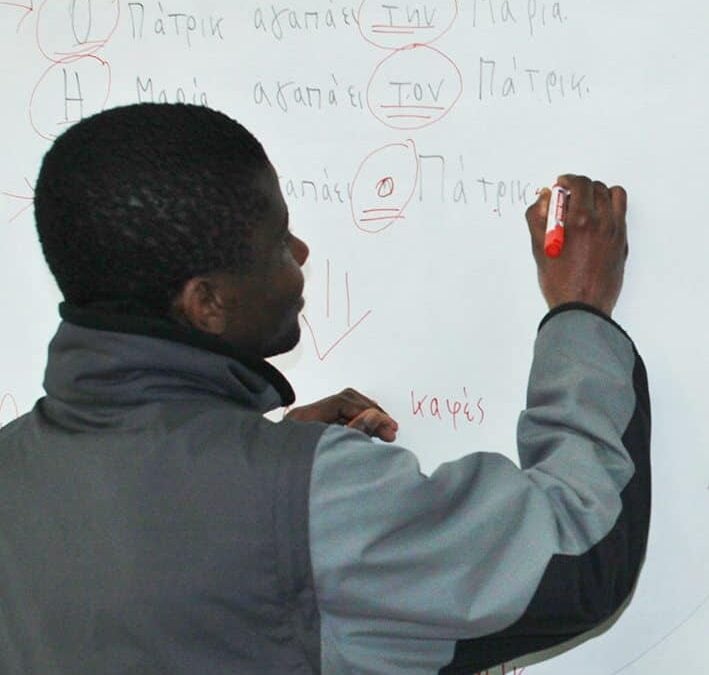 Ο Πάτρικ αγαπάει την Μαρία.
Η Μαρία αγαπάει τον Πάτρικ.
απάει ο Πάτρικ
καφές